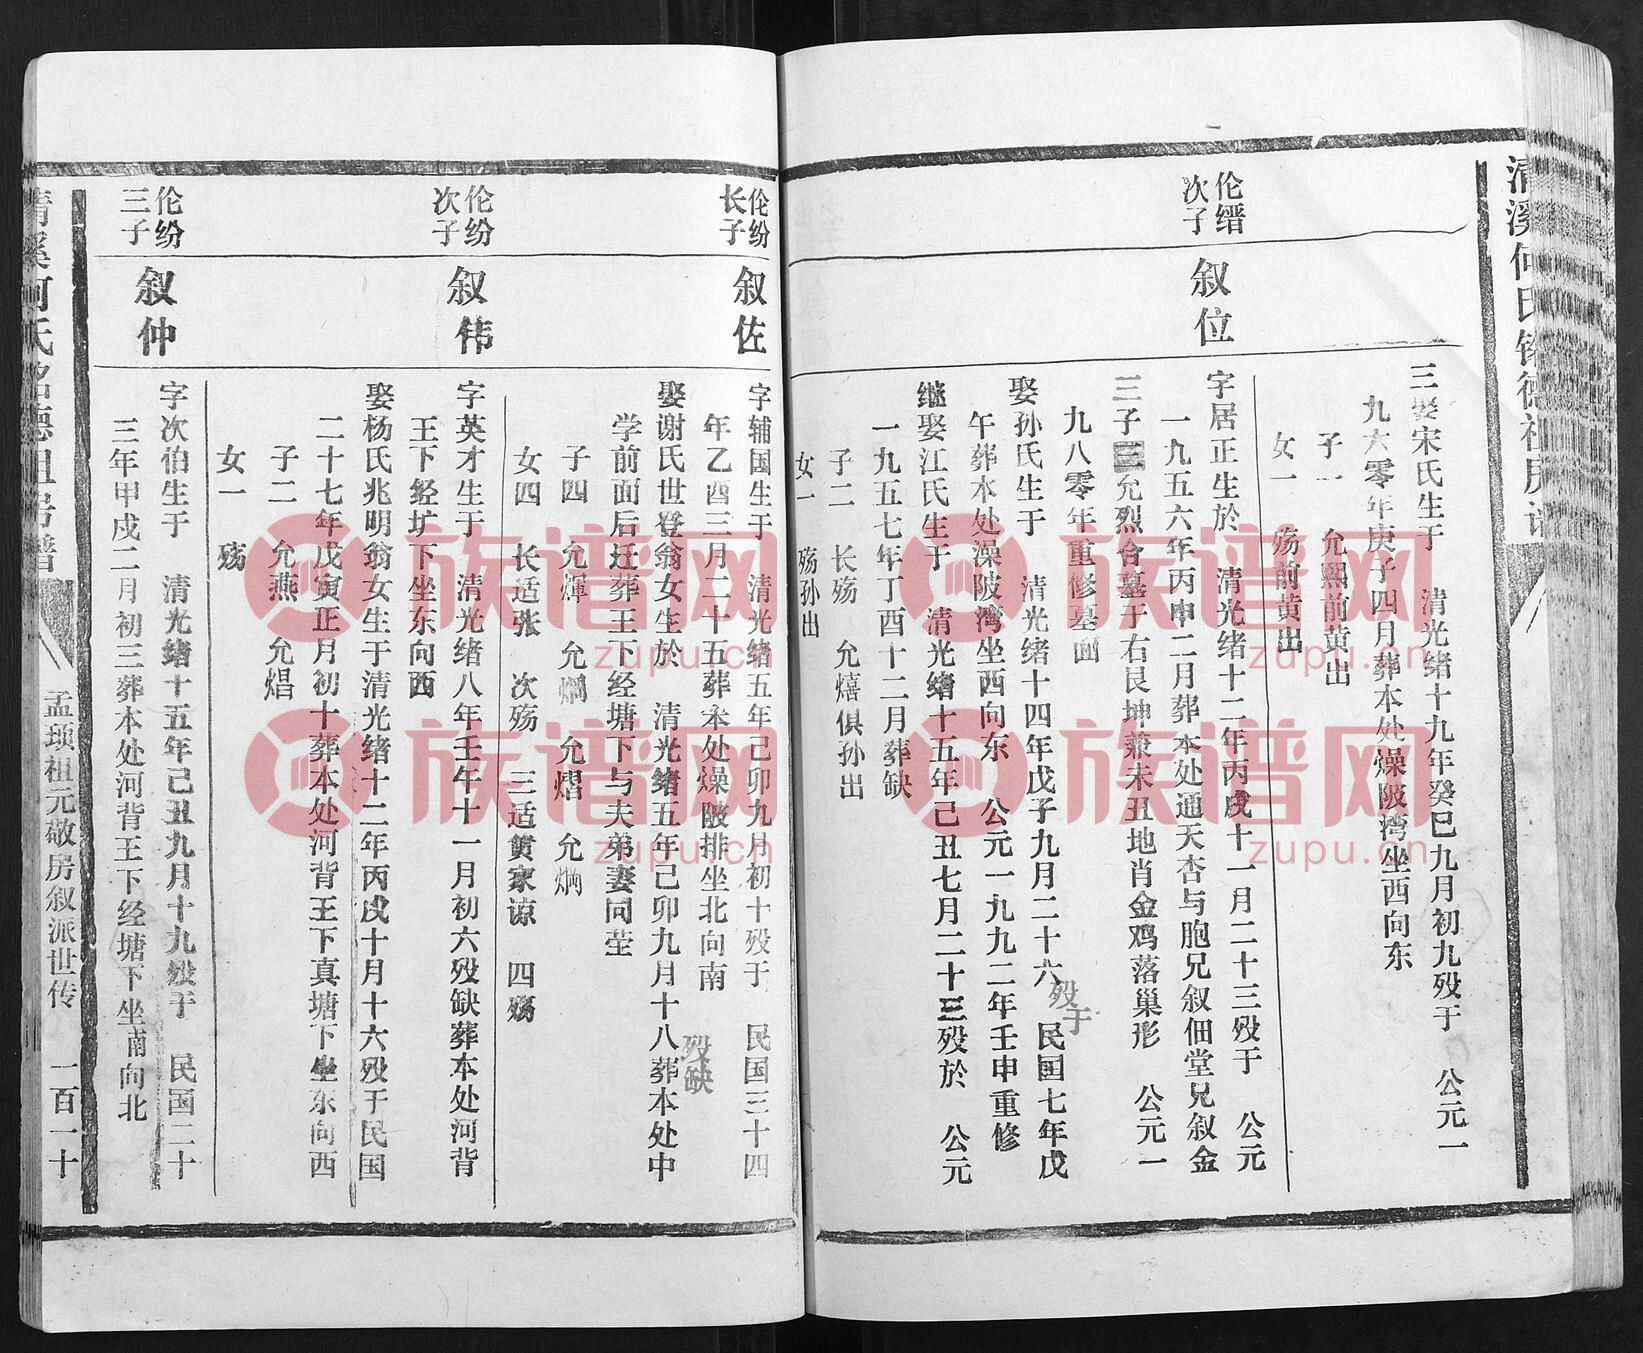 三娶宋氏生于　清光绪十九年癸巳九月初九殁于　公元一
九六零年庚子四月葬本处燥陂湾坐西向东
子一　允熙前黄出
女一　殇前黄出
伦缙
次子
叙位
字居正生於　清光绪十二年丙戌十一月二十三殁于　公元
一九五六年丙申二月葬本处通天杏与胞兄叙佃堂兄叙金
三子三允烈合墓于右艮坤兼未丑地肖金鸡落巢形　公元一
九八零年重修墓面
娶孙氏生于　清光绪十四年戊子九月二十六殁于　民国七年戊
午葬本处澡陂湾坐西向东　公元一九九二年壬申重修
继娶江氏生于　清光绪十五年己丑七月二十三殁於　公元
一九五七年丁酉十二月葬缺
子二　长殇　允熺俱孙出
女一　殇孙出
伦纷
长子
叙佐
字辅国生于　清光绪五年己卯九月初十殁于　民国三十四
年乙酉三月二十五葬本处燥陂排坐北向南
娶谢氏世登翁女生於　清光绪五年己卯九月十八殁缺葬本处中
学前面后迁葬王下经塘下与夫弟妻同茔
子四　允煇　允　允熠　允
女四　长适张　次殇　三适黄家谅　四殇
伦纷
次子
叙伟
字英才生于　清光绪八年壬午十一月初六殁缺葬本处河背
王下经圹下坐东向西
娶杨氏兆明翁女生于清光绪十二年丙戌十月十六殁于民国
二十七年戊寅正月初十葬本处河背王下真塘下坐东向西
子二　允燕　允焻
女一　殇
伦纷
三子
叙仲
字次伯生于　清光绪十五年己丑九月十九殁于　民国二十
三年甲戌二月初三葬本处河背王下经塘下坐南向北
孟顼祖元敬房叙派世传　一百一十
族谱网
zupu.cn
族谱网
zupu.cn
族谱网
zupu.cn
族谱网
zupu.cn